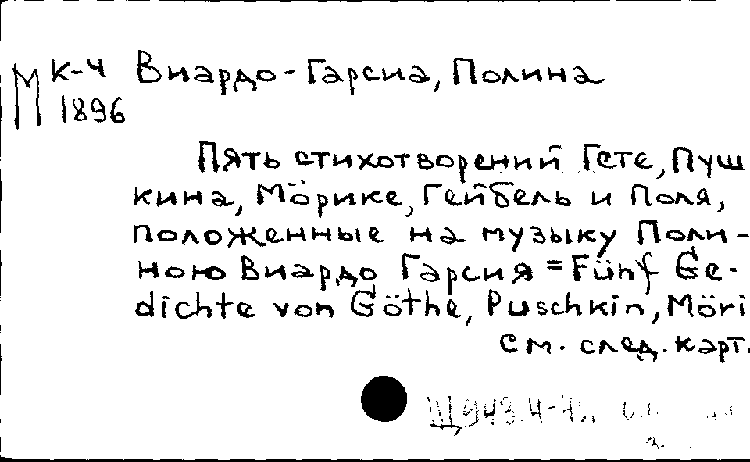 М К-4 Виардо-Гарсиа, Полина
1896
Пять стихотворений Гете, Пуш
кина, Мӧрике, Гейбель и Поля,
положенные на музыку Поли-
ною Виардо Гарсия = Fünf Ge-
dichte von Göthe, Puschkin, Möri
см. след. карт.
Щ943.4-